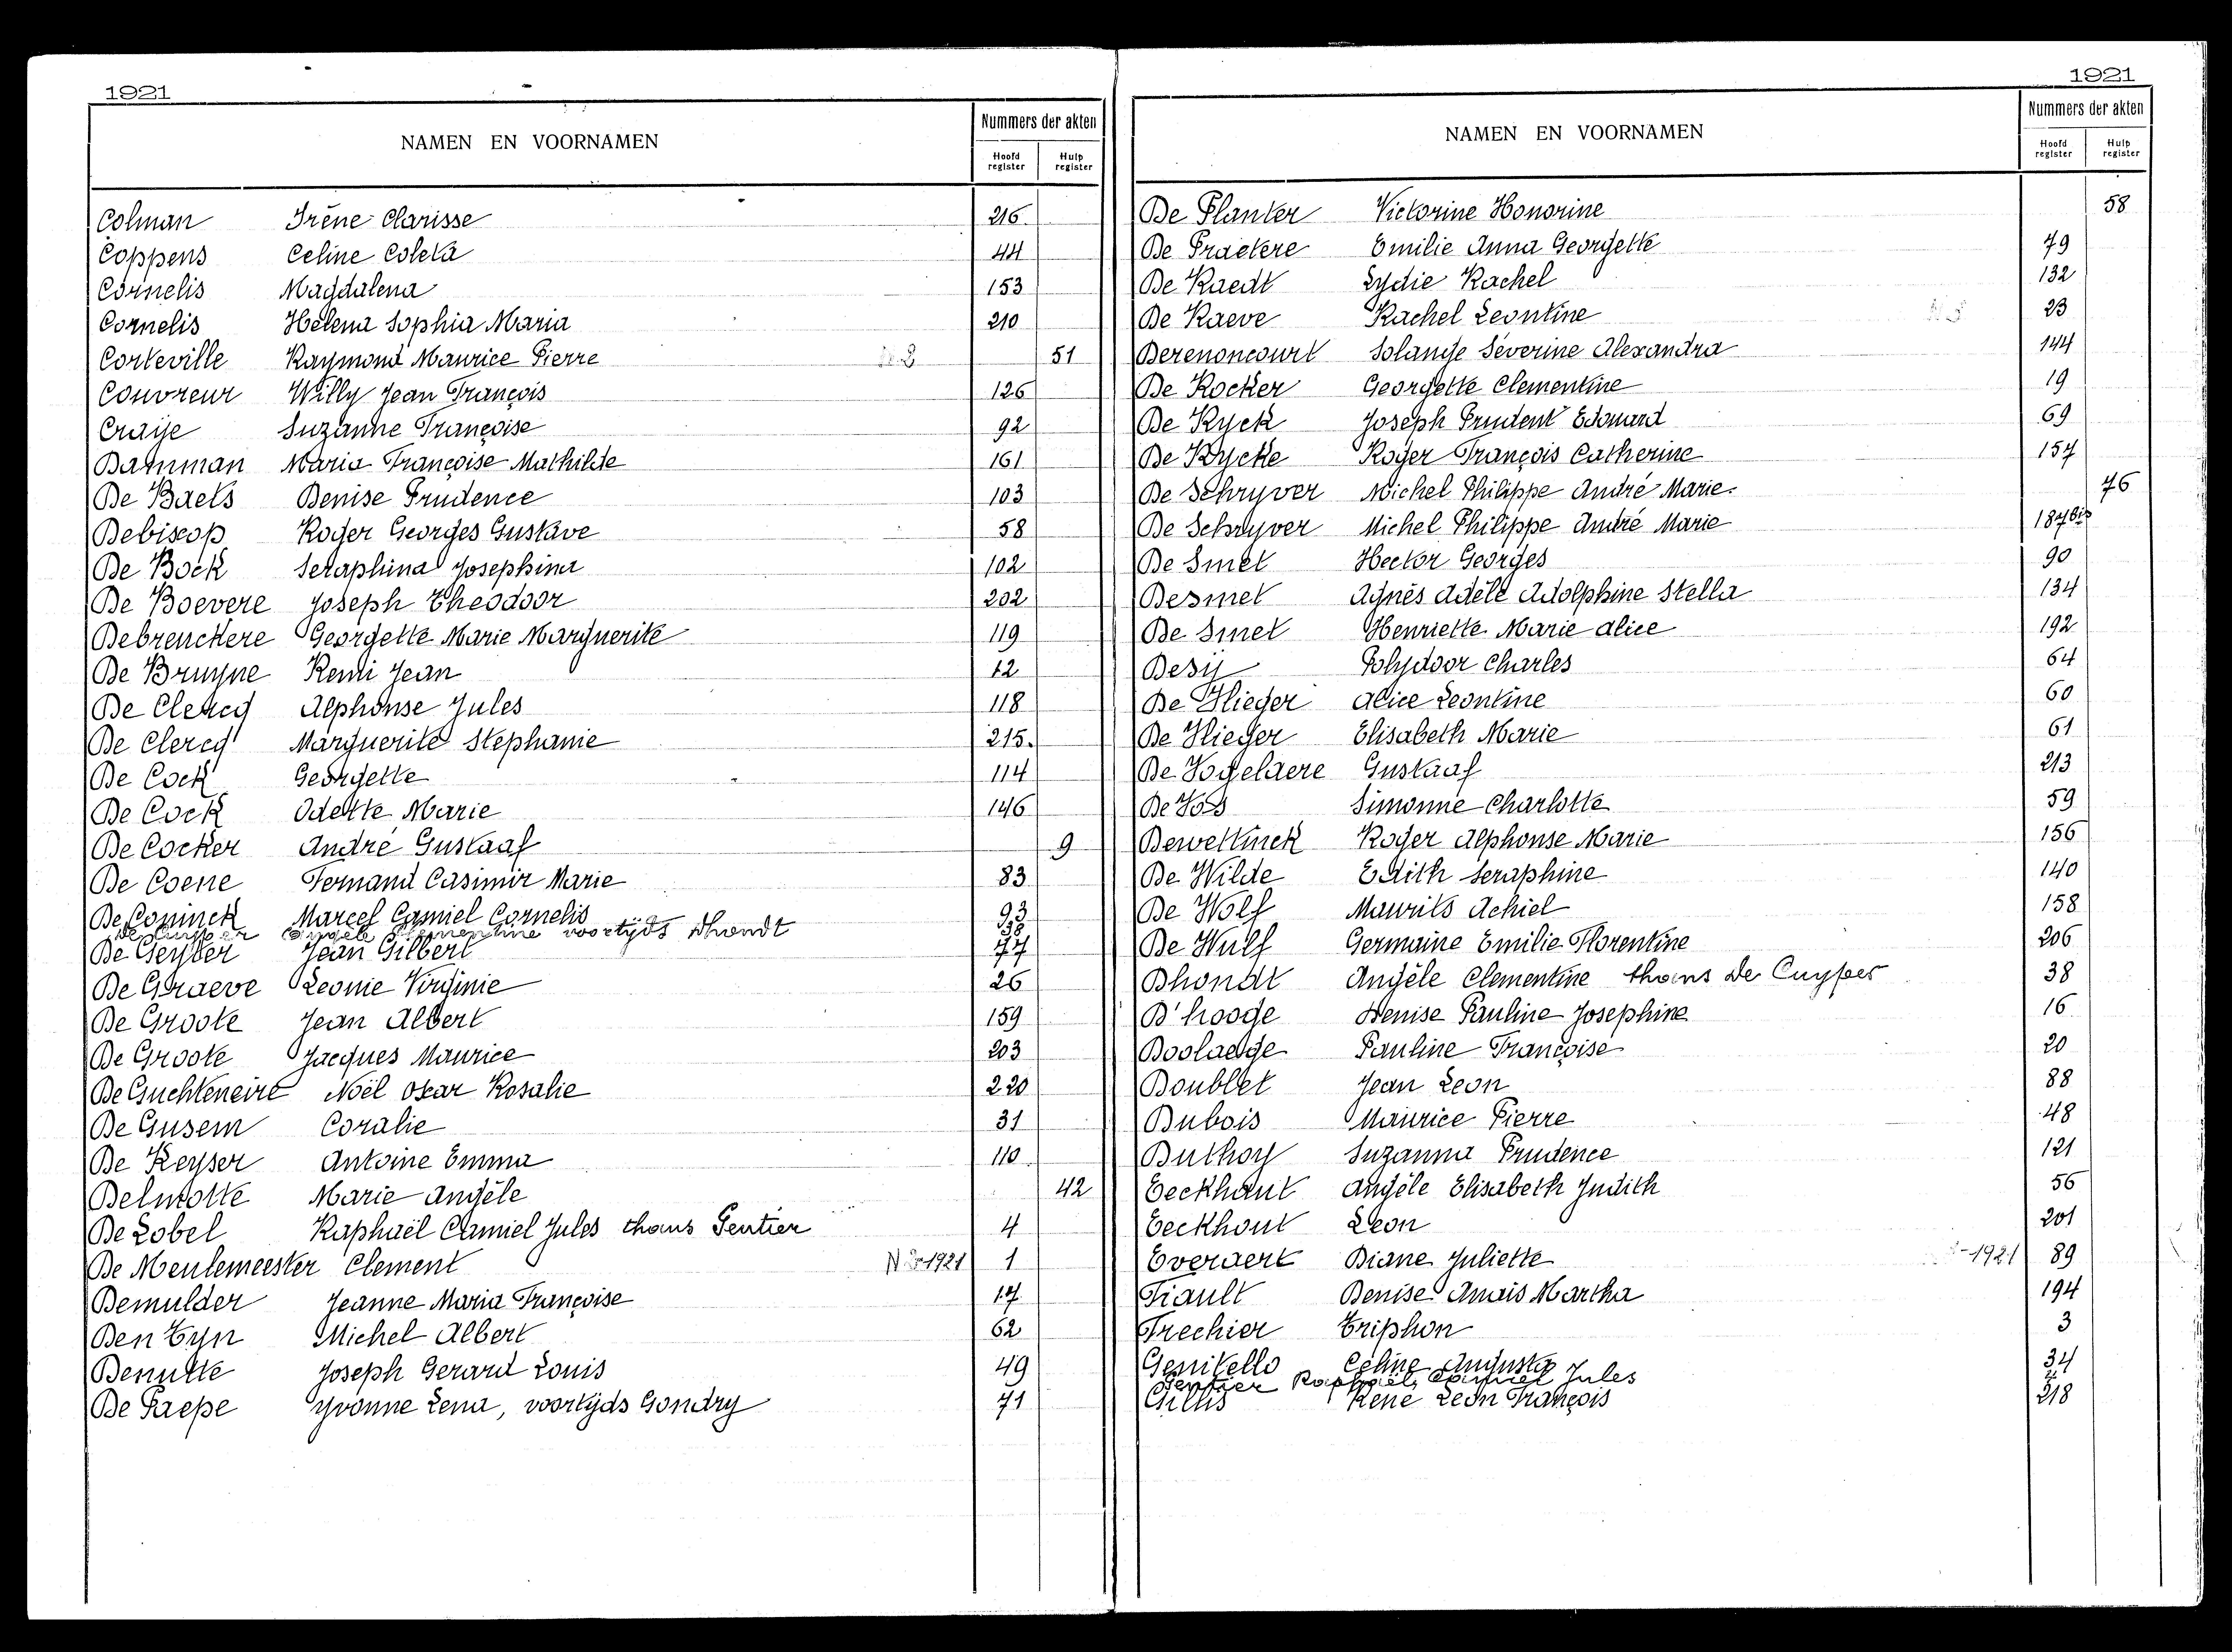 1921
NAMEN EN VOORNAMEN
Nummers der akten
Hoofd register
Hulp register
Colman Irène Clarisse 216
Coppens Celine Coleta 44
Cornelis Magdalena 153
Cornelis Helena Sophia Maria 210
Corteville Raymond Maurice Pierre 51
Couvreur Willy Jean François 126
Craije Suzanne Françoise 92
Damman Maria Françoise Mathilde 161
De Baets Denise Prudence 103
Debiscop Roger Georges Gustave 58
De Bock Seraphina Josephina 102
De Boevere Joseph Theodoor 202
Debrenckere Georgette Marie Marguerite 119
De Bruyne Remi Jean 12
De Clercq Alphonse Jules 118
De Clercq Marguerite Stephanie 215.
De Cock Georgette 114
De Cock Odette Marie 146
De Cocker André Gustaaf 9
De Coene Fernand Casimir Marie 83
De Coninck Marcel Camiel Cornelis 93
De Cuyper Angèle Clementine voortijds Dhondt 38
De Geyter Jean Gilbert 77
De Graeve Leonie Virginie 26
De Groote Jean Albert 159
De Groote Jacques Maurice 203
De Guchteneire Noël Oscar Rosalie 220
De Gusem Coralie 31
De Keyser Antoine Emma 110
Delmotte Marie Angèle 42
De Lobel Raphaël Camiel Jules thans Gentier 4
De Meulemeester Clement 1921 1
Demulder Jeanne Maria Françoise 17
Den Tyn Michel Albert 62
Denutte Joseph Gerard Louis 49
De Paepe Yvonne Lena, voortijds Gondry 71
1921
NAMEN EN VOORNAMEN
Nummers der akten
Hoofd register
Hulp register
De Planter Victorine Honorine 58
De Praetere Emilie Anna Georgette 79
De Raedt Lydie Rachel 132
De Raeve Rachel Leontine 23
Derenoncourt Solange Séverine Alexandra 144
De Rocker Georgette Clementine 19
De Ryck Joseph Prudent Edouard 69
De Rycke Roger François Catherine 157
De Schryver Michel Philippe André Marie 76
De Schryver Michel Philippe André Marie 187bis
De Smet Hector Georges 90
Desmet Agnès Adèle Adolphine Stella 134
De Smet Henriette Marie Alice 192
Desy Polydoor Charles 64
De Vlieger Alice Leontine 60
De Vlieger Elisabeth Marie 61
De Vogelaere Gustaaf 213
De Vos Simonne Charlotte 59
Dewettinck Roger Alphonse Marie 156
De Wilde Edith Seraphine 140
De Wolf Maurits Achiel 158
De Wulf Germaine Emilie Florentine 206
Dhondt Angèle Clementine thans De Cuyper 38
D'hooge Denise Pauline Josephine 16
Doolaege Pauline Françoise 20
Doublet Jean Leon 88
Dubois Maurice Pierre 48
Duthoy Suzanna Prudence 121
Eeckhaut Angèle Elisabeth Judith 56
Eeckhout Leon 201
Everaert Diane Juliette -1921 89
Fiault Denise Anaïs Martha 194
Frechier Triphon 3
Genitello Celine Augusta 34
Gentier Raphaël Camiel Jules 4
Gillis René Leon François 218